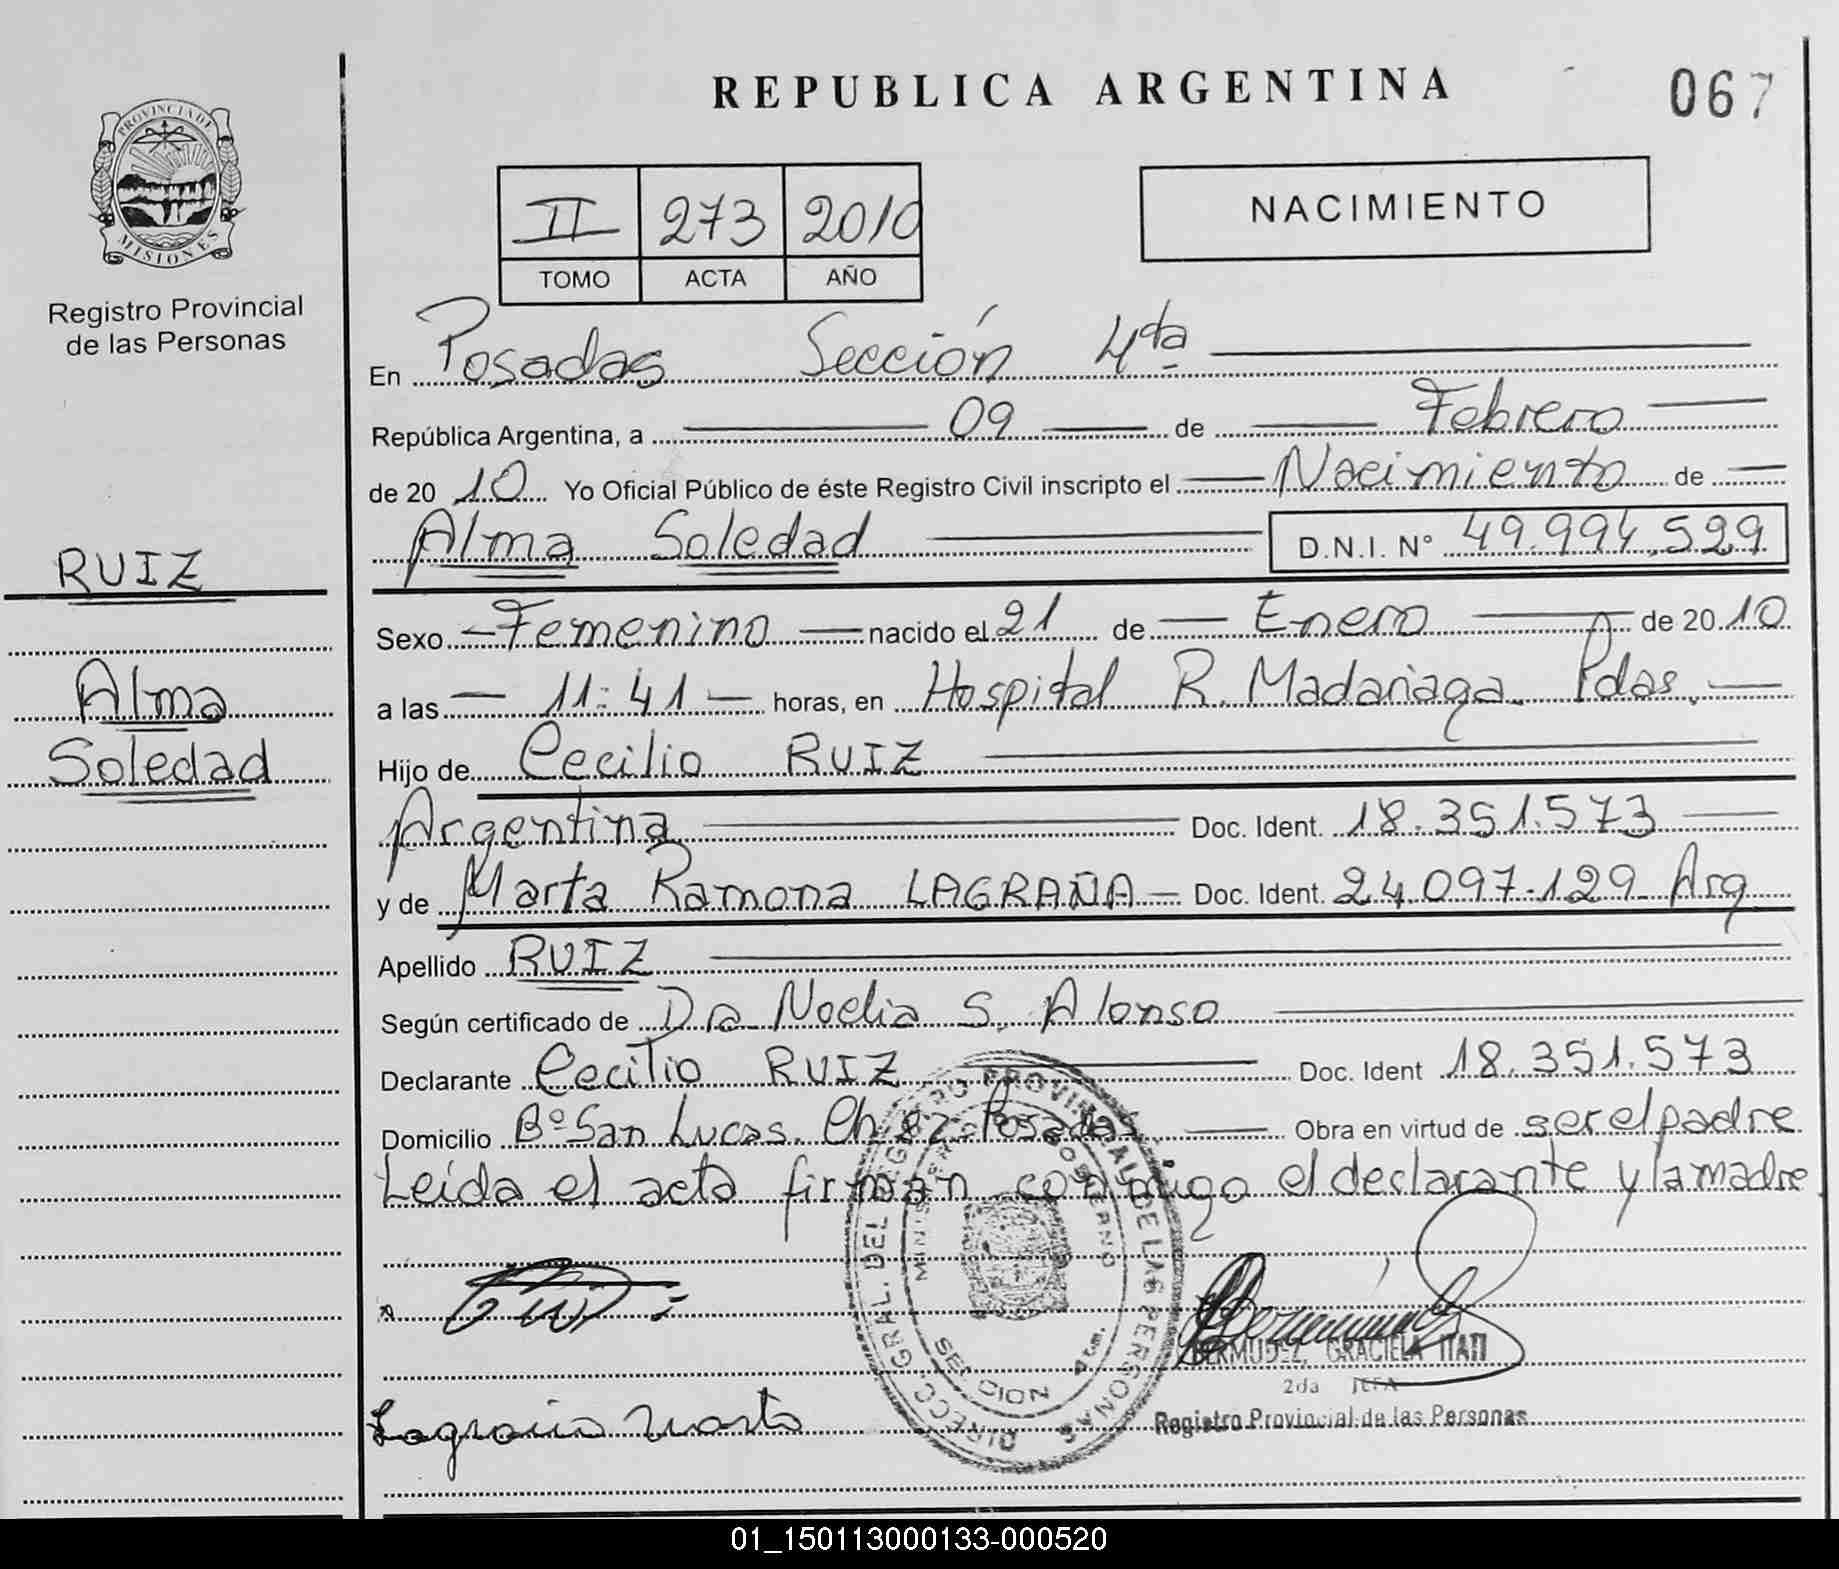 REPUBLICA ARGENTINA
067
PROVINCIA DE
MISIONES
Registro Provincial
de las Personas
II 273 2010
TOMO ACTA AÑO
NACIMIENTO
En Posadas Sección 4ta
República Argentina, a 09 de Febrero
de 20 10 Yo Oficial Público de éste Registro Civil inscripto el Nacimiento de
Alma Soledad D.N.I. N° 49.994.529
RUIZ
Alma
Soledad
Sexo Femenino nacido el 21 de Enero de 20 10
a las 11:41 horas, en Hospital R. Madariaga Pdas.
Hijo de Cecilio RUIZ
Argentina Doc. Ident. 18.351.573
y de Marta Ramona LAGRAÑA Doc. Ident. 24.097.129 Arg
Apellido RUIZ
Según certificado de Dra Noelia S. Alonso
Declarante Cecilio RUIZ Doc. Ident 18.351.573
Domicilio Bº San Lucas. Ch 82 Posadas Obra en virtud de ser el padre
Leída el acta firman conmigo el declarante y la madre
DIRECC. GRAL. DEL REGISTRO PROVINCIAL DE LAS PERSONAS
MINISTERIO GOBIERNO
SECCION 4ta.
BERMUDEZ, GRACIELA ITATI
2da JEFA
Registro Provincial de las Personas
Lagraña Marta
01_150113000133-000520